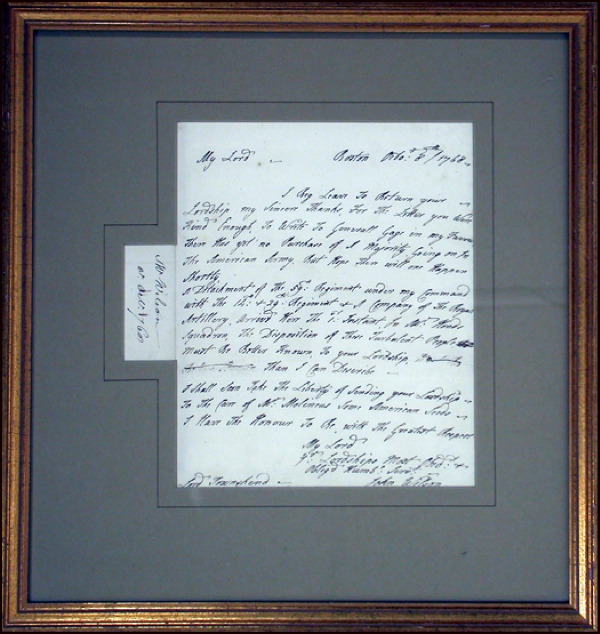 My Lord Boston Octo. 8th/1768
I Beg Leave To Return your
Lordship my Sincere Thanks, For The Letter you Were
Kind Enough To Write To Generall Gage in my Favour
There Has yet no Purchase of A Majority Going on In
The American Army But Hope There will one Happen
Shortly.
A Detachment of The 59th. Regiment under my Command
with The 14th. & 29th Regiment & A Company of The Royal
Artillery, Arrived Here The Instant, in Mr. Hood's
Squadron, The Disposition of These Turbulent People
must Be Better Known To your Lordship,
Than I Can Describe
I Shall Soon Take The Liberty of Sending your Lordship
To The Care of Mr. Molineux Some American Seeds
I Have The Honour To Be, with The Greatest Respect
My Lord
Yr. Lordships Most Obedt. &
Oblig'd Humbl. Servt.
John Wilson
Lord Townshend
Mr. Wilson